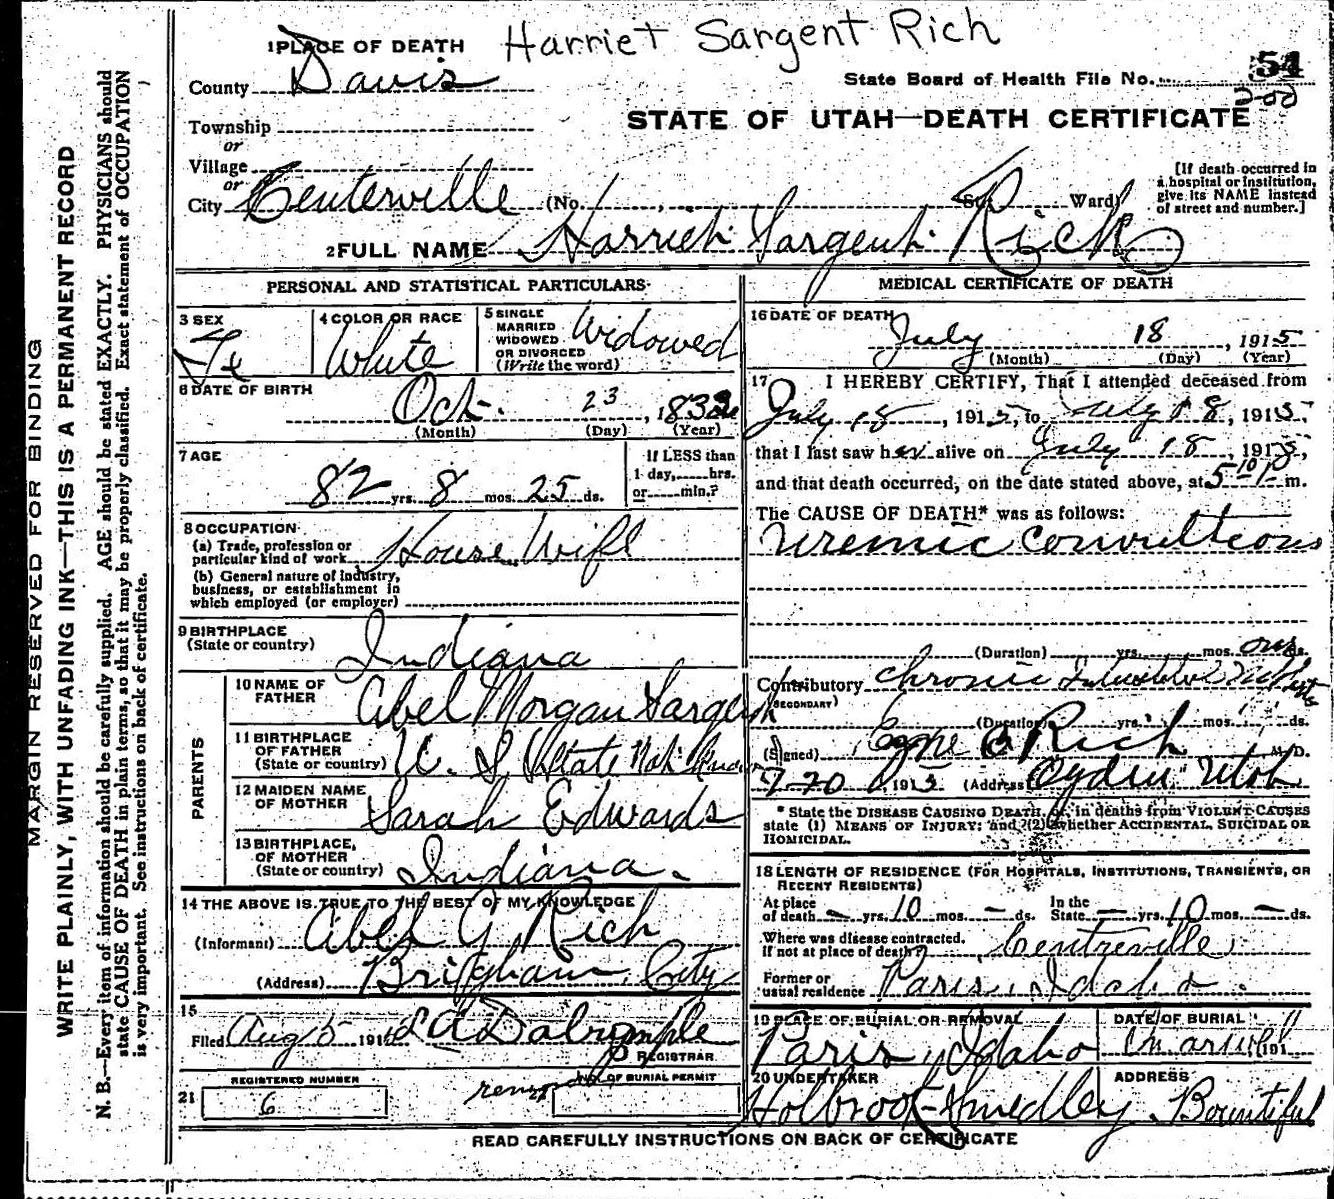 Harriet Sargent Rich
1 PLACE OF DEATH
County Davis
State Board of Health File No. 54
200
Township
or
Village
or
City Centerville (No. St. Ward)
STATE OF UTAH—DEATH CERTIFICATE
[If death occurred in
a hospital or institution,
give its NAME instead
of street and number.]
2 FULL NAME Harriet Sargent Rich
PERSONAL AND STATISTICAL PARTICULARS
3 SEX
Fe
4 COLOR OR RACE
White
5 SINGLE
MARRIED
WIDOWED
OR DIVORCED
(Write the word)
Widowed
6 DATE OF BIRTH
Oct. 23, 1832
(Month) (Day) (Year)
7 AGE
82 yrs. 8 mos. 25 ds.
If LESS than
1 day, hrs.
or min.?
8 OCCUPATION
(a) Trade, profession or
particular kind of work House Wife
(b) General nature of industry,
business, or establishment in
which employed (or employer)
9 BIRTHPLACE
(State or country) Indiana
PARENTS
10 NAME OF
FATHER Abel Morgan Sargent
11 BIRTHPLACE
OF FATHER
(State or country) U. S. State Not
12 MAIDEN NAME
OF MOTHER Sarah Edwards
13 BIRTHPLACE
OF MOTHER
(State or country) Indiana.
14 THE ABOVE IS TRUE TO THE BEST OF MY KNOWLEDGE
(Informant) Abel G Rich
(Address) Brigham City
15
Filed Aug 5 191 Dalrymple
REGISTRAR
REGISTERED NUMBER
21 6
NO. OF BURIAL PERMIT
MEDICAL CERTIFICATE OF DEATH
16 DATE OF DEATH
July 18, 1915
(Month) (Day) (Year)
17 I HEREBY CERTIFY, That I attended deceased from
July 18, 1915, to July 18, 1915,
that I last saw her alive on July 18, 1915,
and that death occurred, on the date stated above, at 5 10 P m.
The CAUSE OF DEATH* was as follows:
Uremic Convultions
(Duration) yrs. mos. one ds.
Contributory Chronic
(SECONDARY)
(Duration) yrs. mos. ds.
(Signed) Rich M. D.
7-20 1915 (Address) Ogden Utah
* State the DISEASE CAUSING DEATH, or, in deaths from VIOLENT CAUSES
state (1) MEANS OF INJURY; and (2) whether ACCIDENTAL, SUICIDAL OR
HOMICIDAL.
18 LENGTH OF RESIDENCE (FOR HOSPITALS, INSTITUTIONS, TRANSIENTS, OR
RECENT RESIDENTS)
At place
of death — yrs. 10 mos. — ds.
In the
State — yrs. 10 mos. — ds.
Where was disease contracted,
if not at place of death? Centreville
Former or
usual residence Paris, Idaho.
19 PLACE OF BURIAL OR REMOVAL
Paris, Idaho
DATE OF BURIAL
On arrival 191
20 UNDERTAKER
Holbrook-Smedley
ADDRESS
Bountiful
READ CAREFULLY INSTRUCTIONS ON BACK OF CERTIFICATE
MARGIN RESERVED FOR BINDING
WRITE PLAINLY, WITH UNFADING INK—THIS IS A PERMANENT RECORD
N. B.—Every item of information should be carefully supplied. AGE should be stated EXACTLY. PHYSICIANS should
state CAUSE OF DEATH in plain terms, so that it may be properly classified. Exact statement of OCCUPATION
is very important. See instructions on back of certificate.